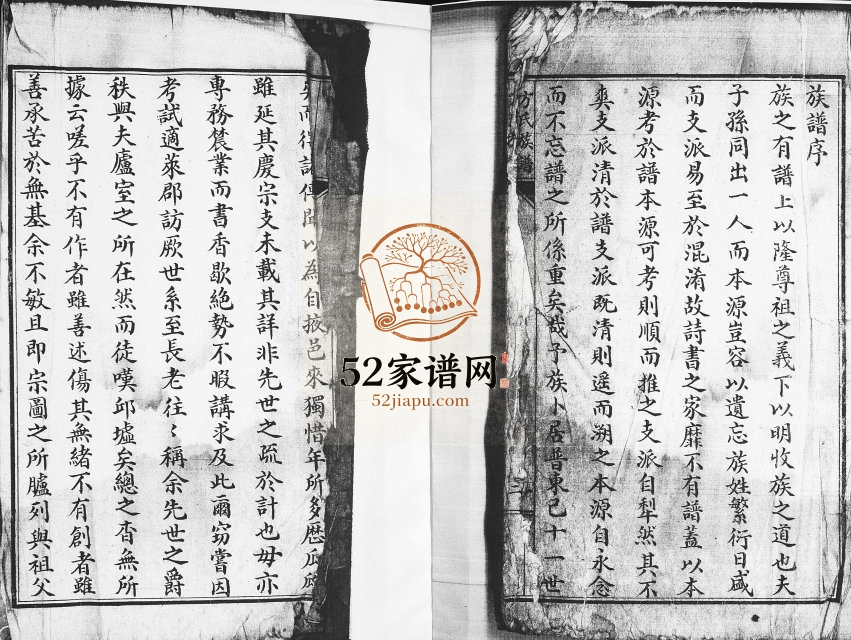 族譜序
族之有譜上以隆尊祖之義下以明收族之道也夫
子孫同出一人而本源豈容以遺忘族姓繁衍日盛
而支派易至於混淆故詩書之家靡不有譜蓋以本
源考於譜本源可考則順而推之支派自犁然其不
爽支派清於譜支派既清則遥而溯之本源自永念
而不忘譜之所係重矣哉予族卜居普東已十一世
方氏族譜
三
矣而得以為自掖邑來獨惜年所多歴瓜
雖延其慶宗支未載其詳非先世之疏於計也毋亦
専務農業而書香歇絶勢不暇講求及此爾窃嘗因
考試適萊郡訪厥世系至長老往〻稱余先世之爵
秩與夫廬室之所在然而徒嘆邱墟矣總之杳無所
據云嗟乎不有作者雖善述傷其無緒不有創者雖
善承苦於無基余不敏且即宗圖之所臚列與祖父
52家谱网
52jiapu.com